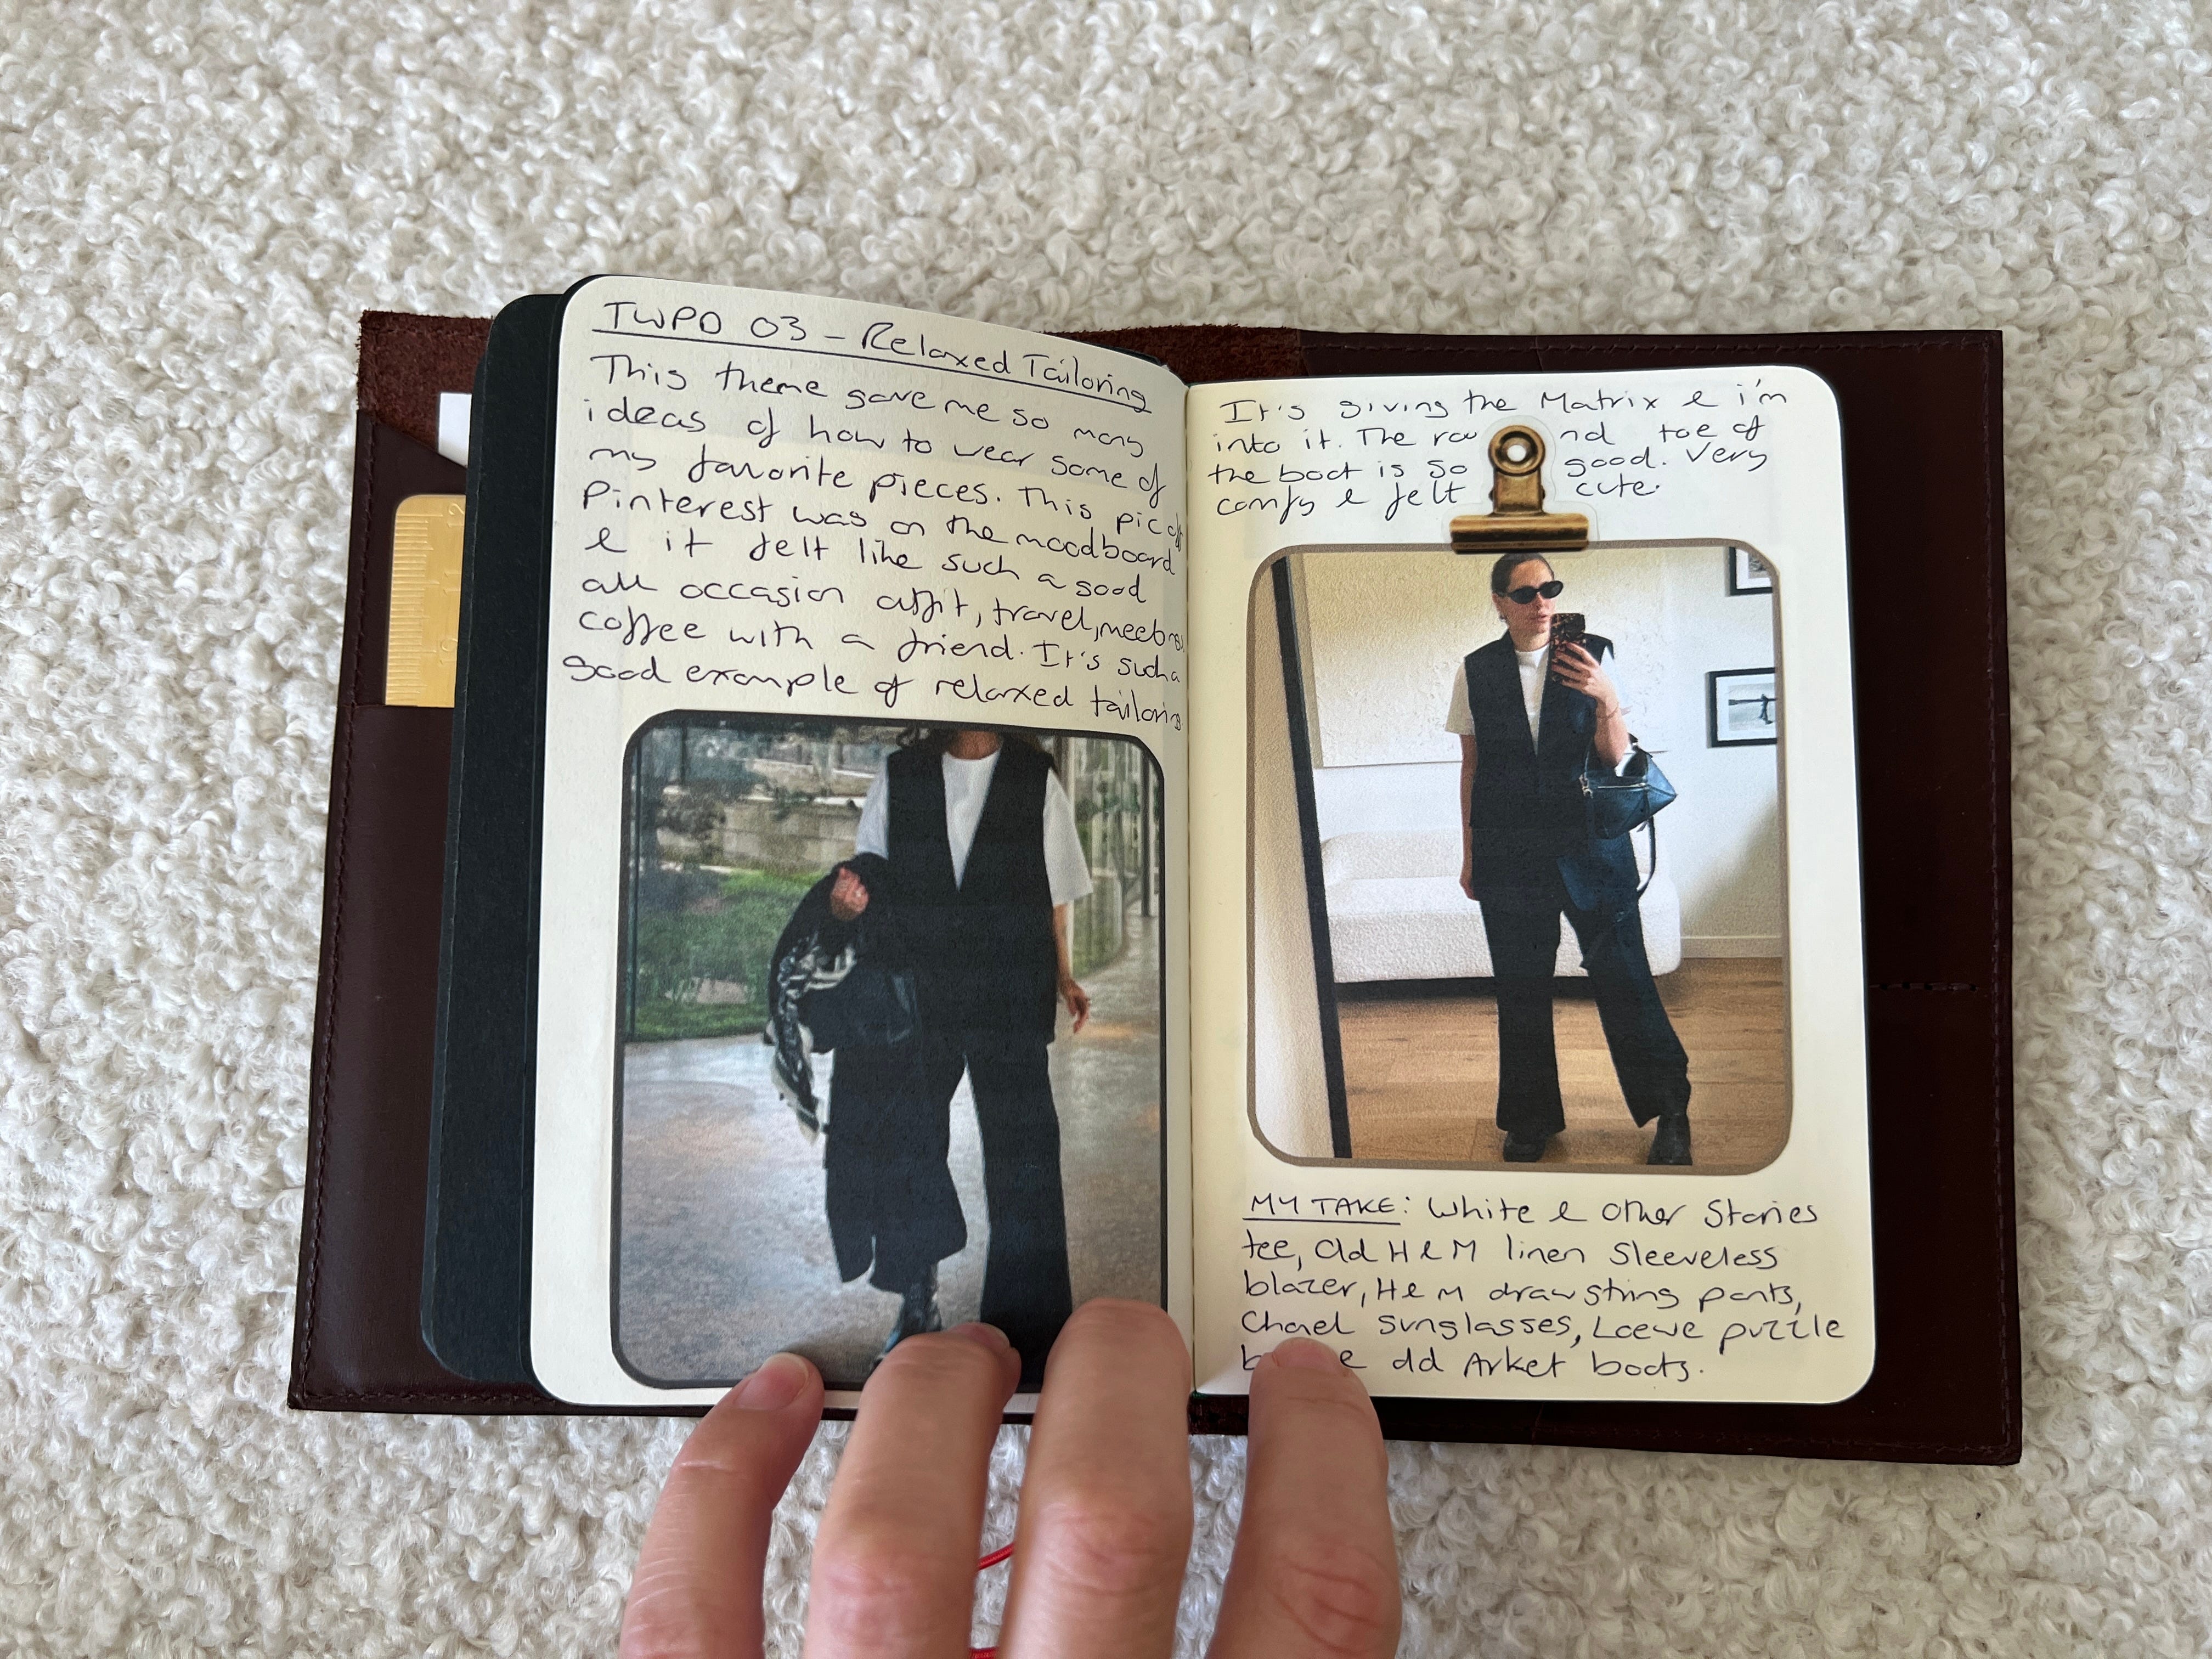 IWPD 03 - Relaxed Tailoring
This theme gave me so many
ideas of how to wear some of
my favorite pieces. This pic of
Pinterest was on the moodboard
& it felt like such a good
all occasion outfit, travel, meetings,
coffee with a friend. It's such a
good example of relaxed tailoring
It's giving the Matrix & i'm
into it. The round toe of
the boot is so good. Very
comfy & felt cute.
MY TAKE: White & Other Stories
tee, Old H&M linen sleeveless
blazer, H&M drawstring pants,
Chanel sunglasses, Loewe puzzle
old Arket boots.